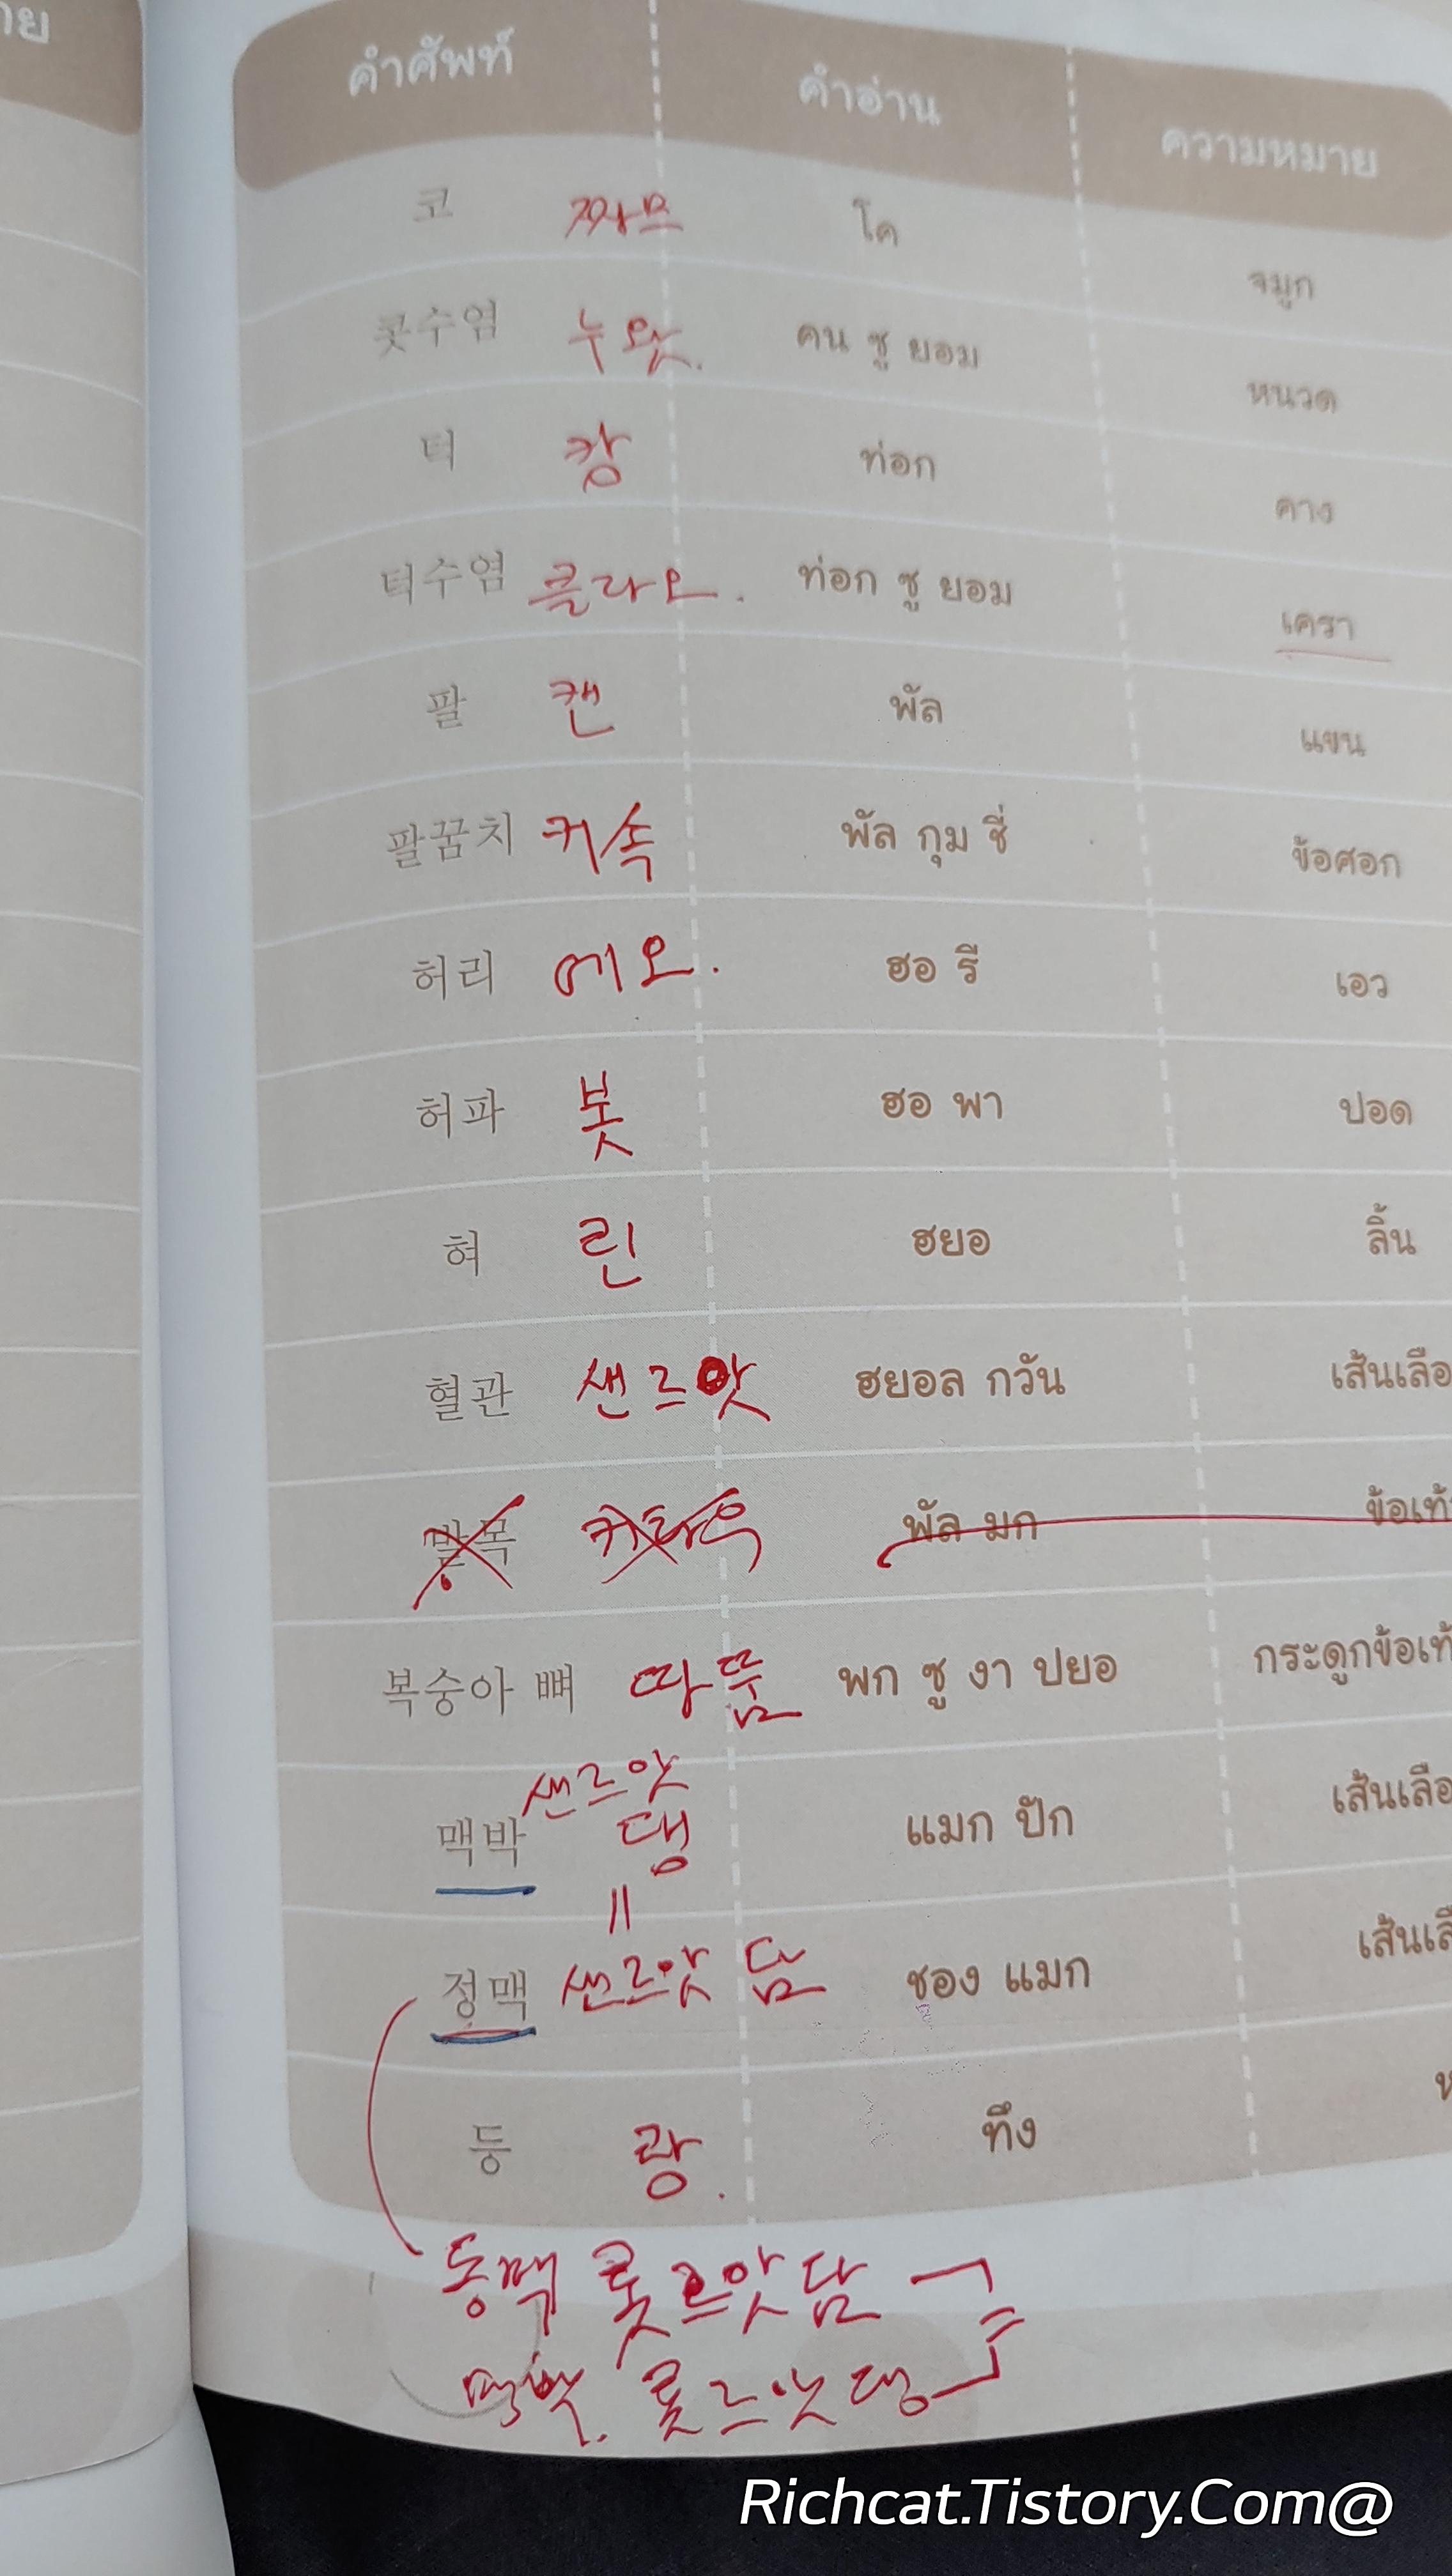 าย
คำศัพท์ คำอ่าน ความหมาย
코 โค จมูก
콧수염 누왓. คน ซู ยอม หนวด
턱 캉 ท่อก คาง
턱수염 클라오. ท่อก ซู ยอม เครา
팔 캔 พัล แขน
팔꿈치 커속 พัล กุม ชี่ ข้อศอก
허리 에오. ฮอ รี เอว
허파 봇 ฮอ พา ปอด
혀 린 ฮยอ ลิ้น
혈관 샌르앗 ฮยอล กวัน เส้นเลือ
발목 พัล มก ข้อเท้
복숭아 뼈 따뚬 พก ซู งา ปยอ กระดูกข้อเท้
샌르앗
맥박 댕 แมก ปัก เส้นเลือ
정맥 샌르앗 담 ชอง แมก เส้นเลื
등 랑. ทึง ห
동맥 롯르앗담
맥박. 롯르앗댕
Richcat.Tistory.Com@